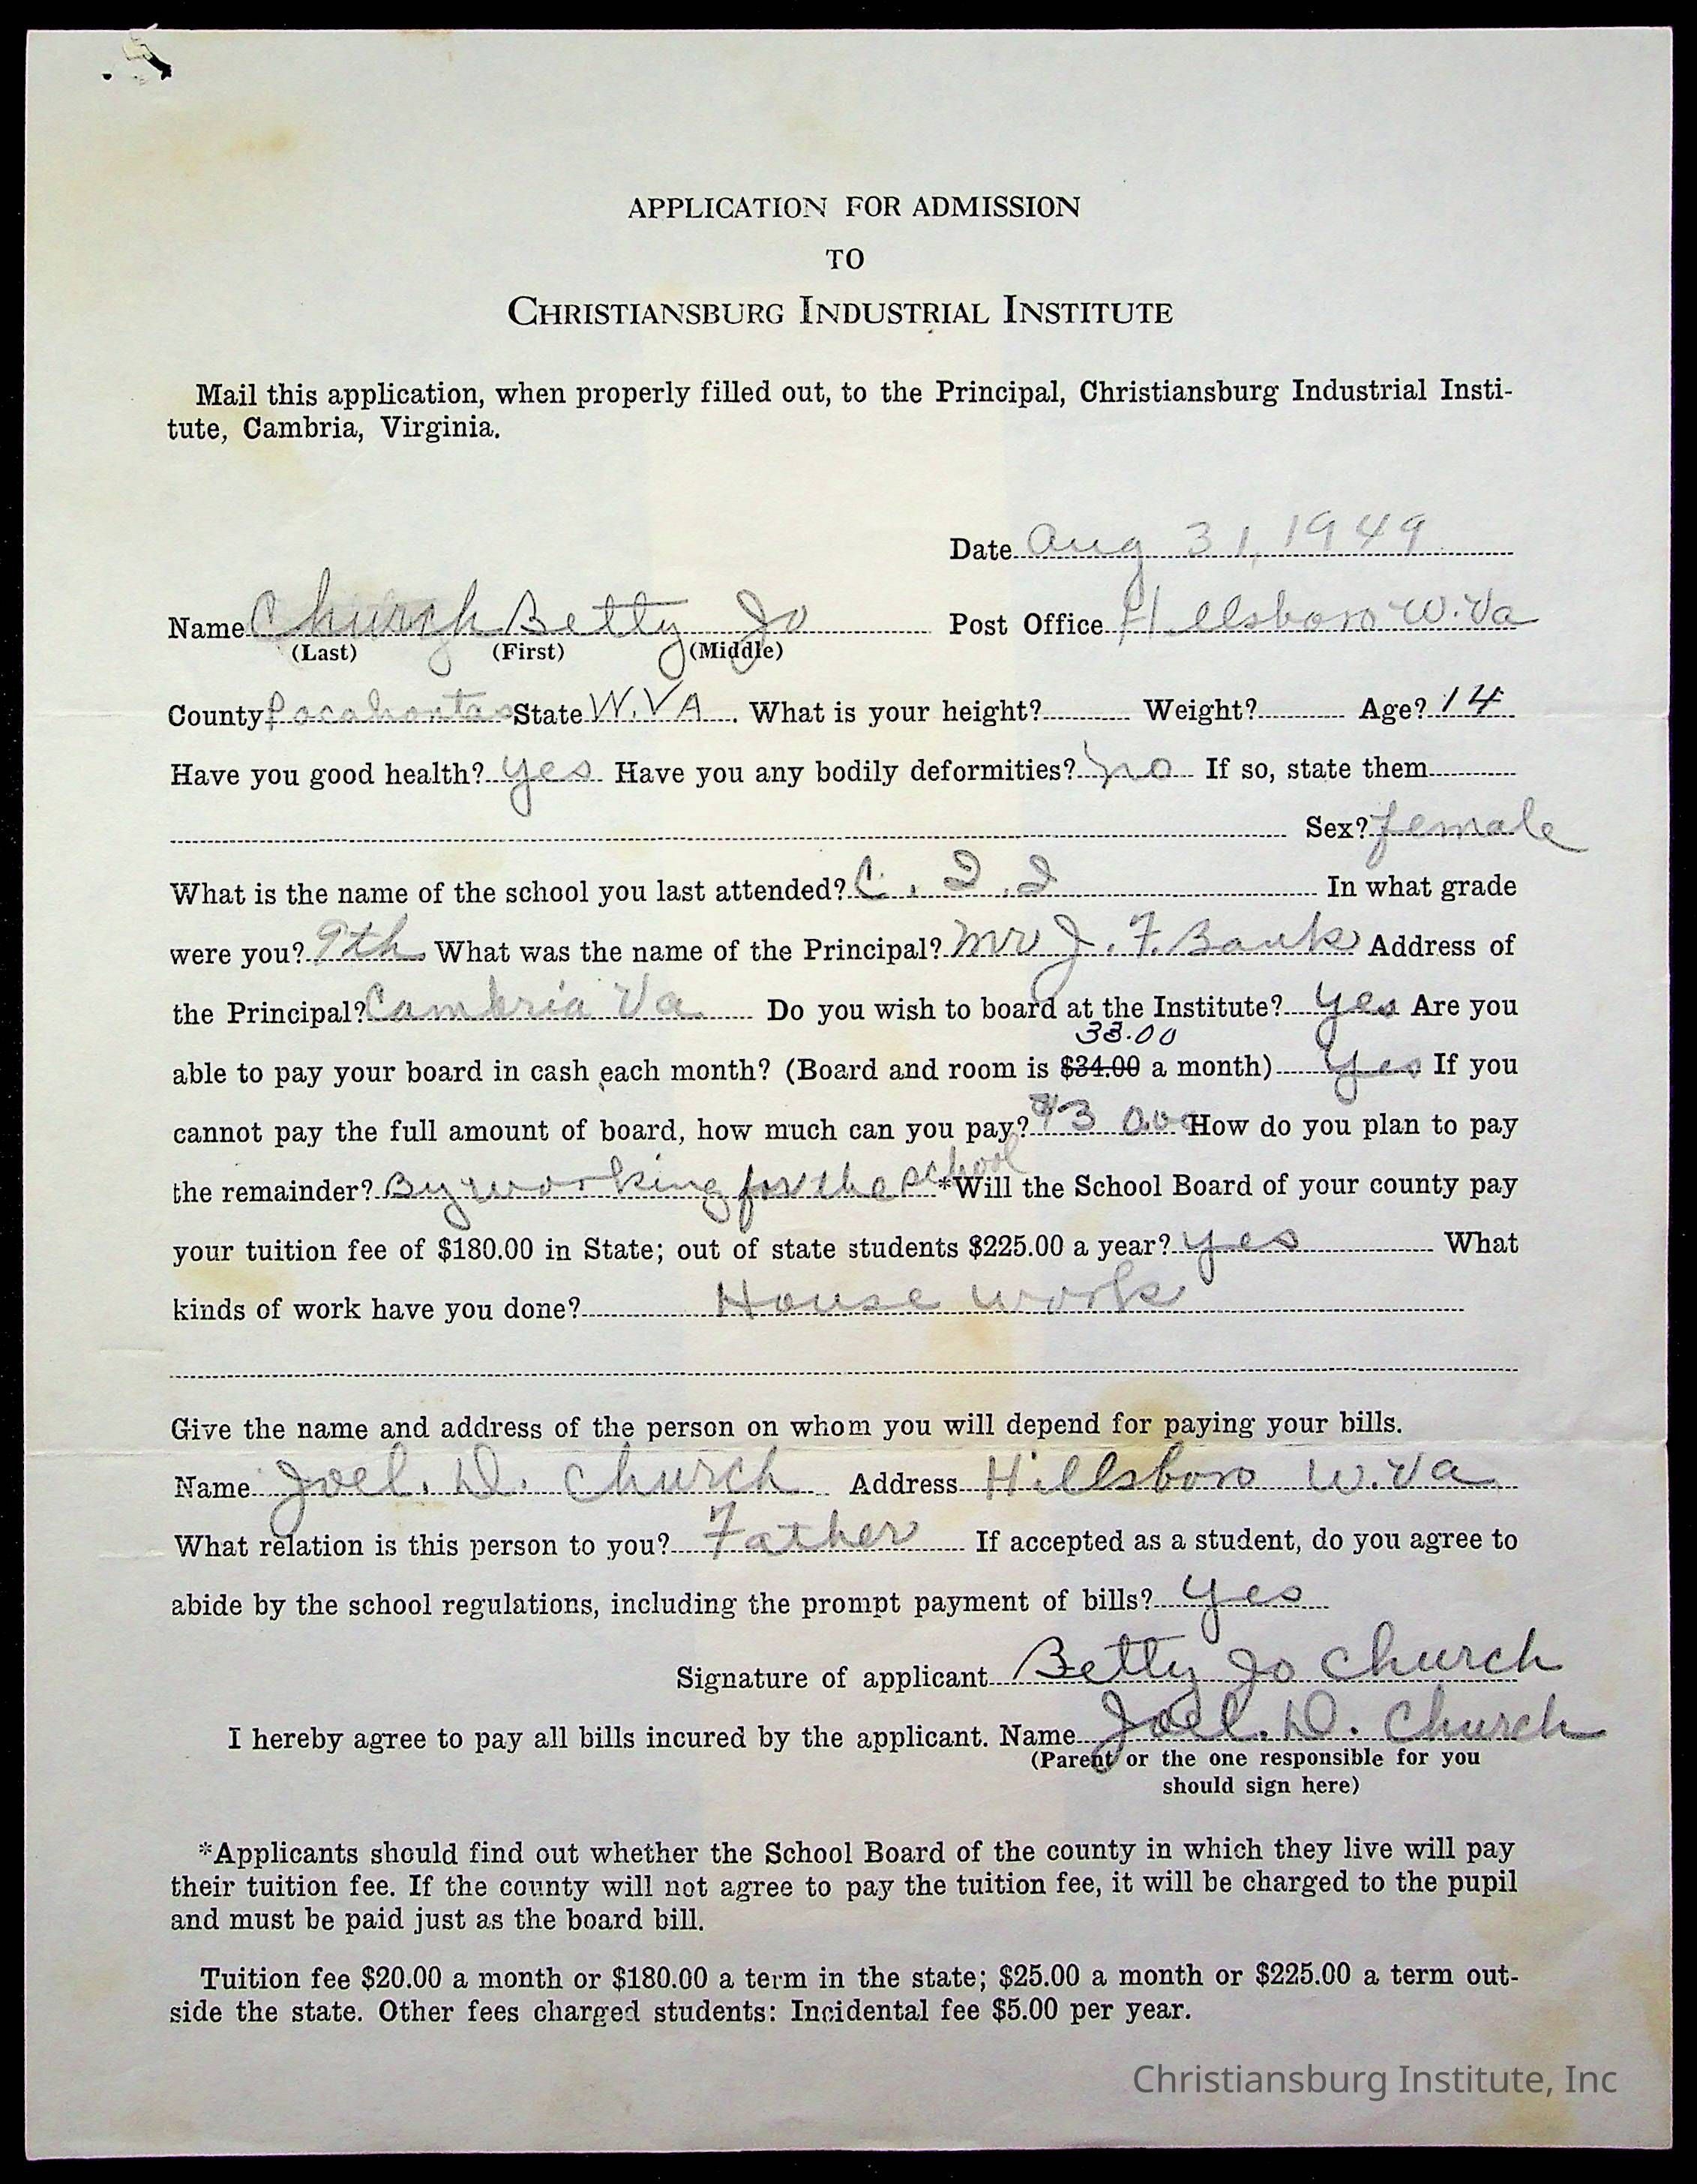 APPLICATION FOR ADMISSION
TO
CHRISTIANSBURG INDUSTRIAL INSTITUTE
Mail this application, when properly filled out, to the Principal, Christiansburg Industrial Insti-
tute, Cambria, Virginia.
Date Aug 31, 1949
Name Church Betty Jo Post Office Hillsboro W. Va
(Last) (First) (Middle)
County Pocahontas State W. VA. What is your height? Weight? Age? 14
Have you good health? yes Have you any bodily deformities? no If so, state them
Sex? female
What is the name of the school you last attended? C. I. I In what grade
were you? 9th What was the name of the Principal? Mr J. F. Banks Address of
the Principal? Cambria Va Do you wish to board at the Institute? yes Are you
33.00
able to pay your board in cash each month? (Board and room is $34.00 a month) yes If you
cannot pay the full amount of board, how much can you pay? $30.00 How do you plan to pay
the remainder? By working for the school *Will the School Board of your county pay
your tuition fee of $180.00 in State; out of state students $225.00 a year? yes What
kinds of work have you done? House work
Give the name and address of the person on whom you will depend for paying your bills.
Name Joel. D. Church Address Hillsboro W. Va
What relation is this person to you? Father If accepted as a student, do you agree to
abide by the school regulations, including the prompt payment of bills? yes
Signature of applicant Betty Jo Church
I hereby agree to pay all bills incured by the applicant. Name Joel. D. Church
(Parent or the one responsible for you
should sign here)
*Applicants should find out whether the School Board of the county in which they live will pay
their tuition fee. If the county will not agree to pay the tuition fee, it will be charged to the pupil
and must be paid just as the board bill.
Tuition fee $20.00 a month or $180.00 a term in the state; $25.00 a month or $225.00 a term out-
side the state. Other fees charged students: Incidental fee $5.00 per year.
Christiansburg Institute, Inc